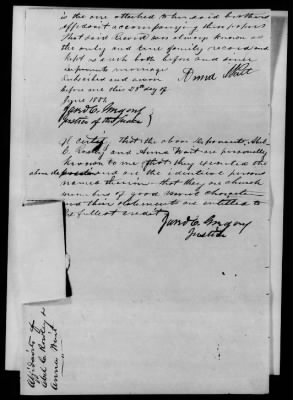 is the one attached to her said brothers
affidavit accompanying this paper
That said record was always known as
the only and true family record and
kept as such both before and since
deponents marriage
Anna Wait
Subscribed and sworn
before me this 28th day of
June 1882
Jared C. Gregory
Justice of the Peace
I certify that the above deponents, Abel
C. Rowley and Anna Wait are personally
known to me that they executed the
above and are the identical persons
named therein that they are church
members of good moral character
and their statements are entitled to
the fullest credit
Jared C. Gregory
Justice
Affidavits of
Abel C. Rowley &
Anna Wait